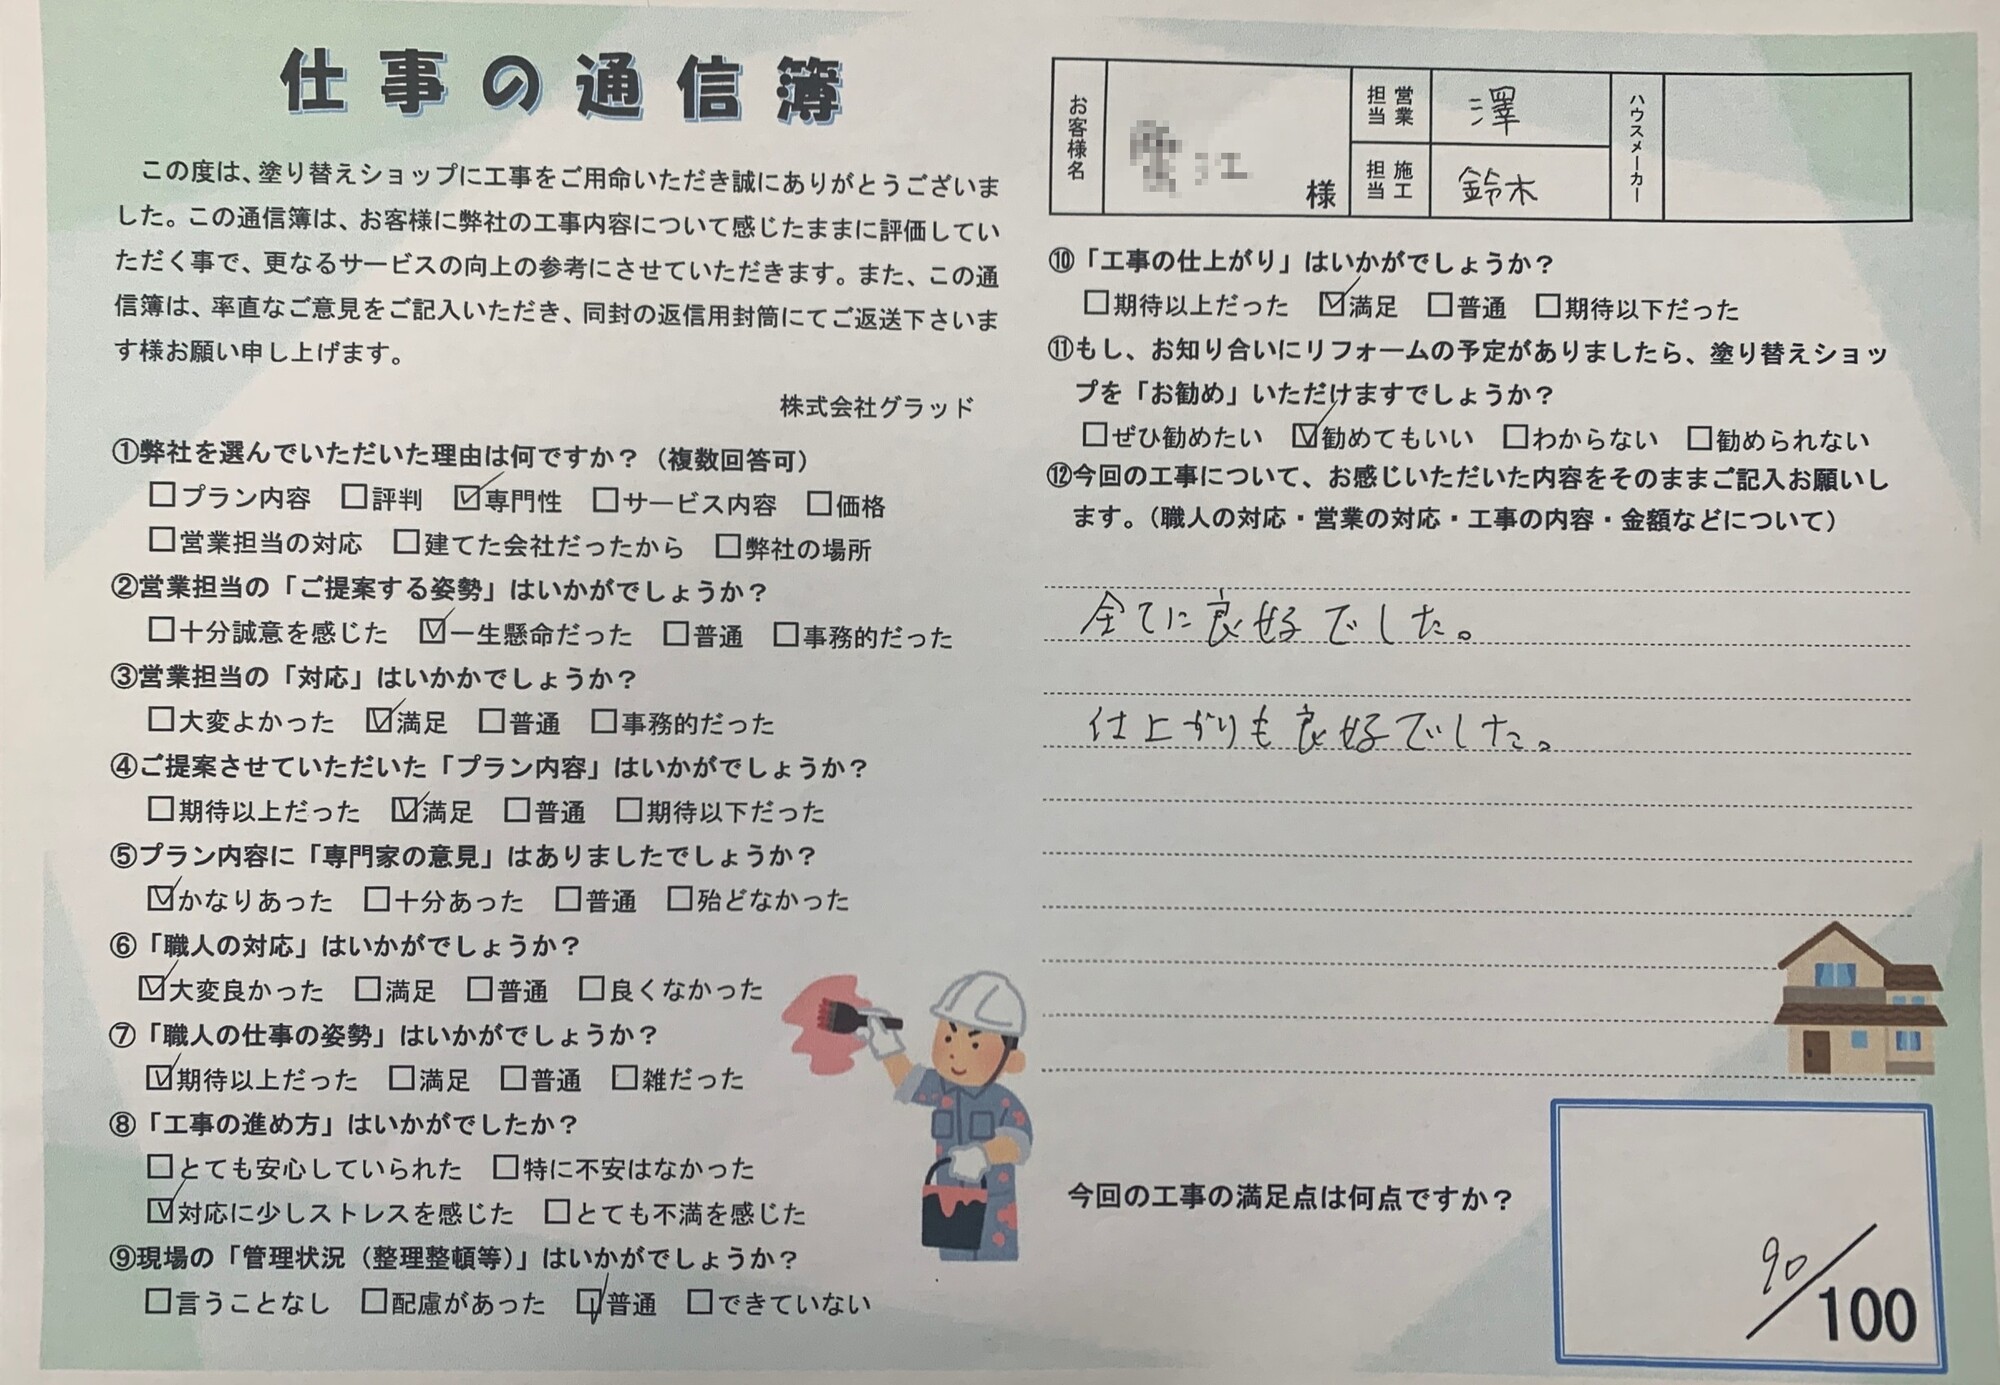 仕事の通信簿
この度は、塗り替えショップに工事をご用命いただき誠にありがとうございま
した。この通信簿は、お客様に弊社の工事内容について感じたままに評価してい
ただく事で、更なるサービスの向上の参考にさせていただきます。また、この通
信簿は、率直なご意見をご記入いただき、同封の返信用封筒にてご返送下さいま
す様お願い申し上げます。
株式会社グラッド
①弊社を選んでいただいた理由は何ですか？（複数回答可）
□プラン内容 □評判 ☑専門性 □サービス内容 □価格
□営業担当の対応 □建てた会社だったから □弊社の場所
②営業担当の「ご提案する姿勢」はいかがでしょうか？
□十分誠意を感じた ☑一生懸命だった □普通 □事務的だった
③営業担当の「対応」はいかかでしょうか？
□大変よかった ☑満足 □普通 □事務的だった
④ご提案させていただいた「プラン内容」はいかがでしょうか？
□期待以上だった ☑満足 □普通 □期待以下だった
⑤プラン内容に「専門家の意見」はありましたでしょうか？
☑かなりあった □十分あった □普通 □殆どなかった
⑥「職人の対応」はいかがでしょうか？
☑大変良かった □満足 □普通 □良くなかった
⑦「職人の仕事の姿勢」はいかがでしょうか？
☑期待以上だった □満足 □普通 □雑だった
⑧「工事の進め方」はいかがでしたか？
□とても安心していられた □特に不安はなかった
☑対応に少しストレスを感じた □とても不満を感じた
⑨現場の「管理状況（整理整頓等）」はいかがでしょうか？
□言うことなし □配慮があった ☑普通 □できていない
お客様名 様
営業担当 澤
施工担当 鈴木
ハウスメーカー
⑩「工事の仕上がり」はいかがでしょうか？
□期待以上だった ☑満足 □普通 □期待以下だった
⑪もし、お知り合いにリフォームの予定がありましたら、塗り替えショッ
プを「お勧め」いただけますでしょうか？
□ぜひ勧めたい ☑勧めてもいい □わからない □勧められない
⑫今回の工事について、お感じいただいた内容をそのままご記入お願いし
ます。（職人の対応・営業の対応・工事の内容・金額などについて）
全てに良好でした。
仕上がりも良好でした。
今回の工事の満足点は何点ですか？
90/100